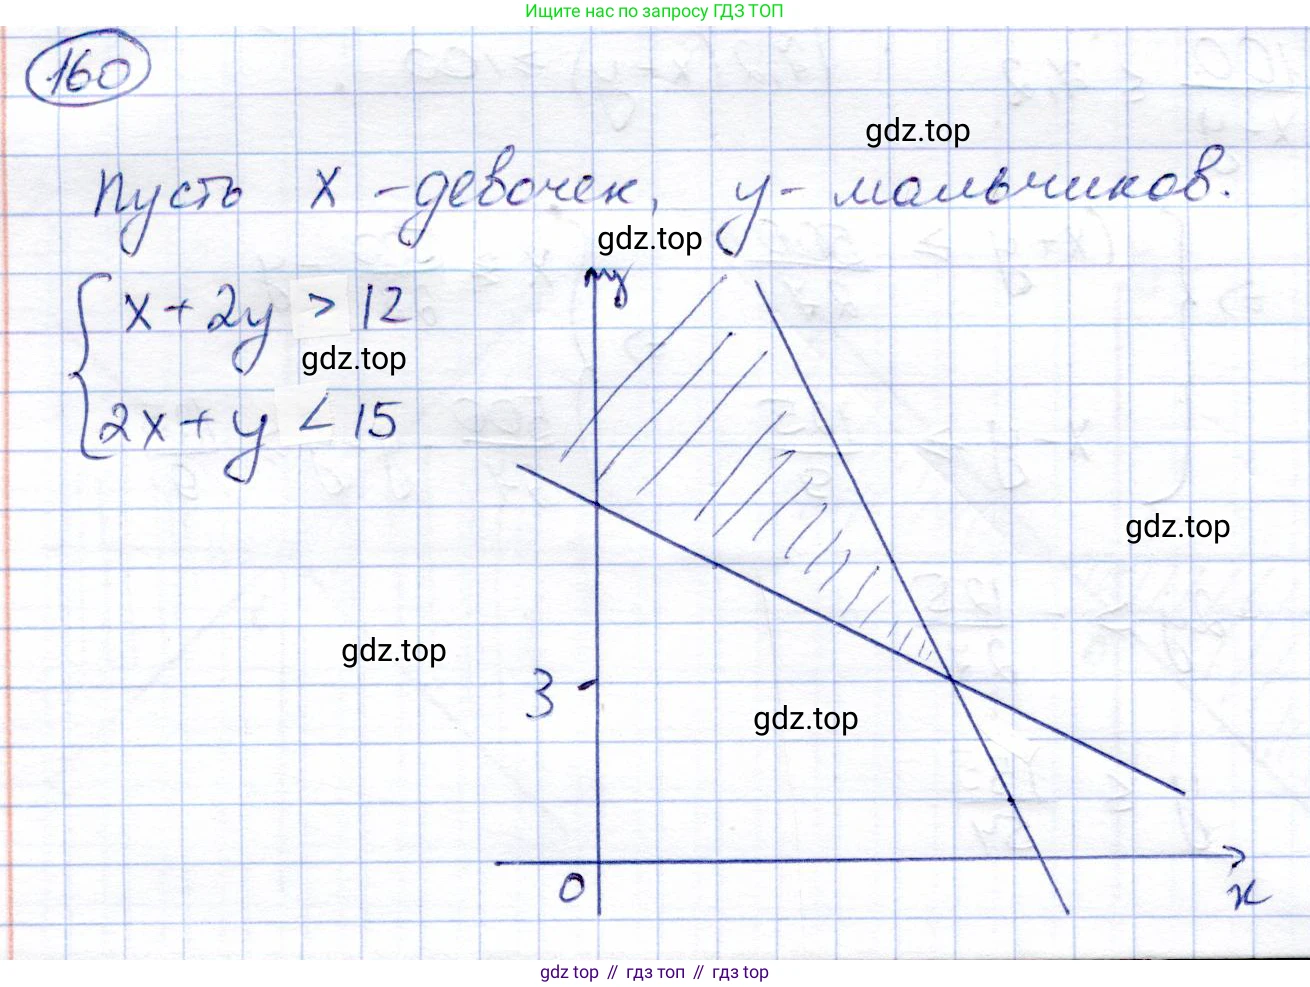 Ищите нас по запросу ГДЗ ТОП
160
gdz.top
Пусть x - девочек, y - мальчиков.
gdz.top
y
x + 2y > 12
gdz.top
2x + y < 15
gdz.top
gdz.top
3
gdz.top
0
x
gdz top // гдз топ // гдз top